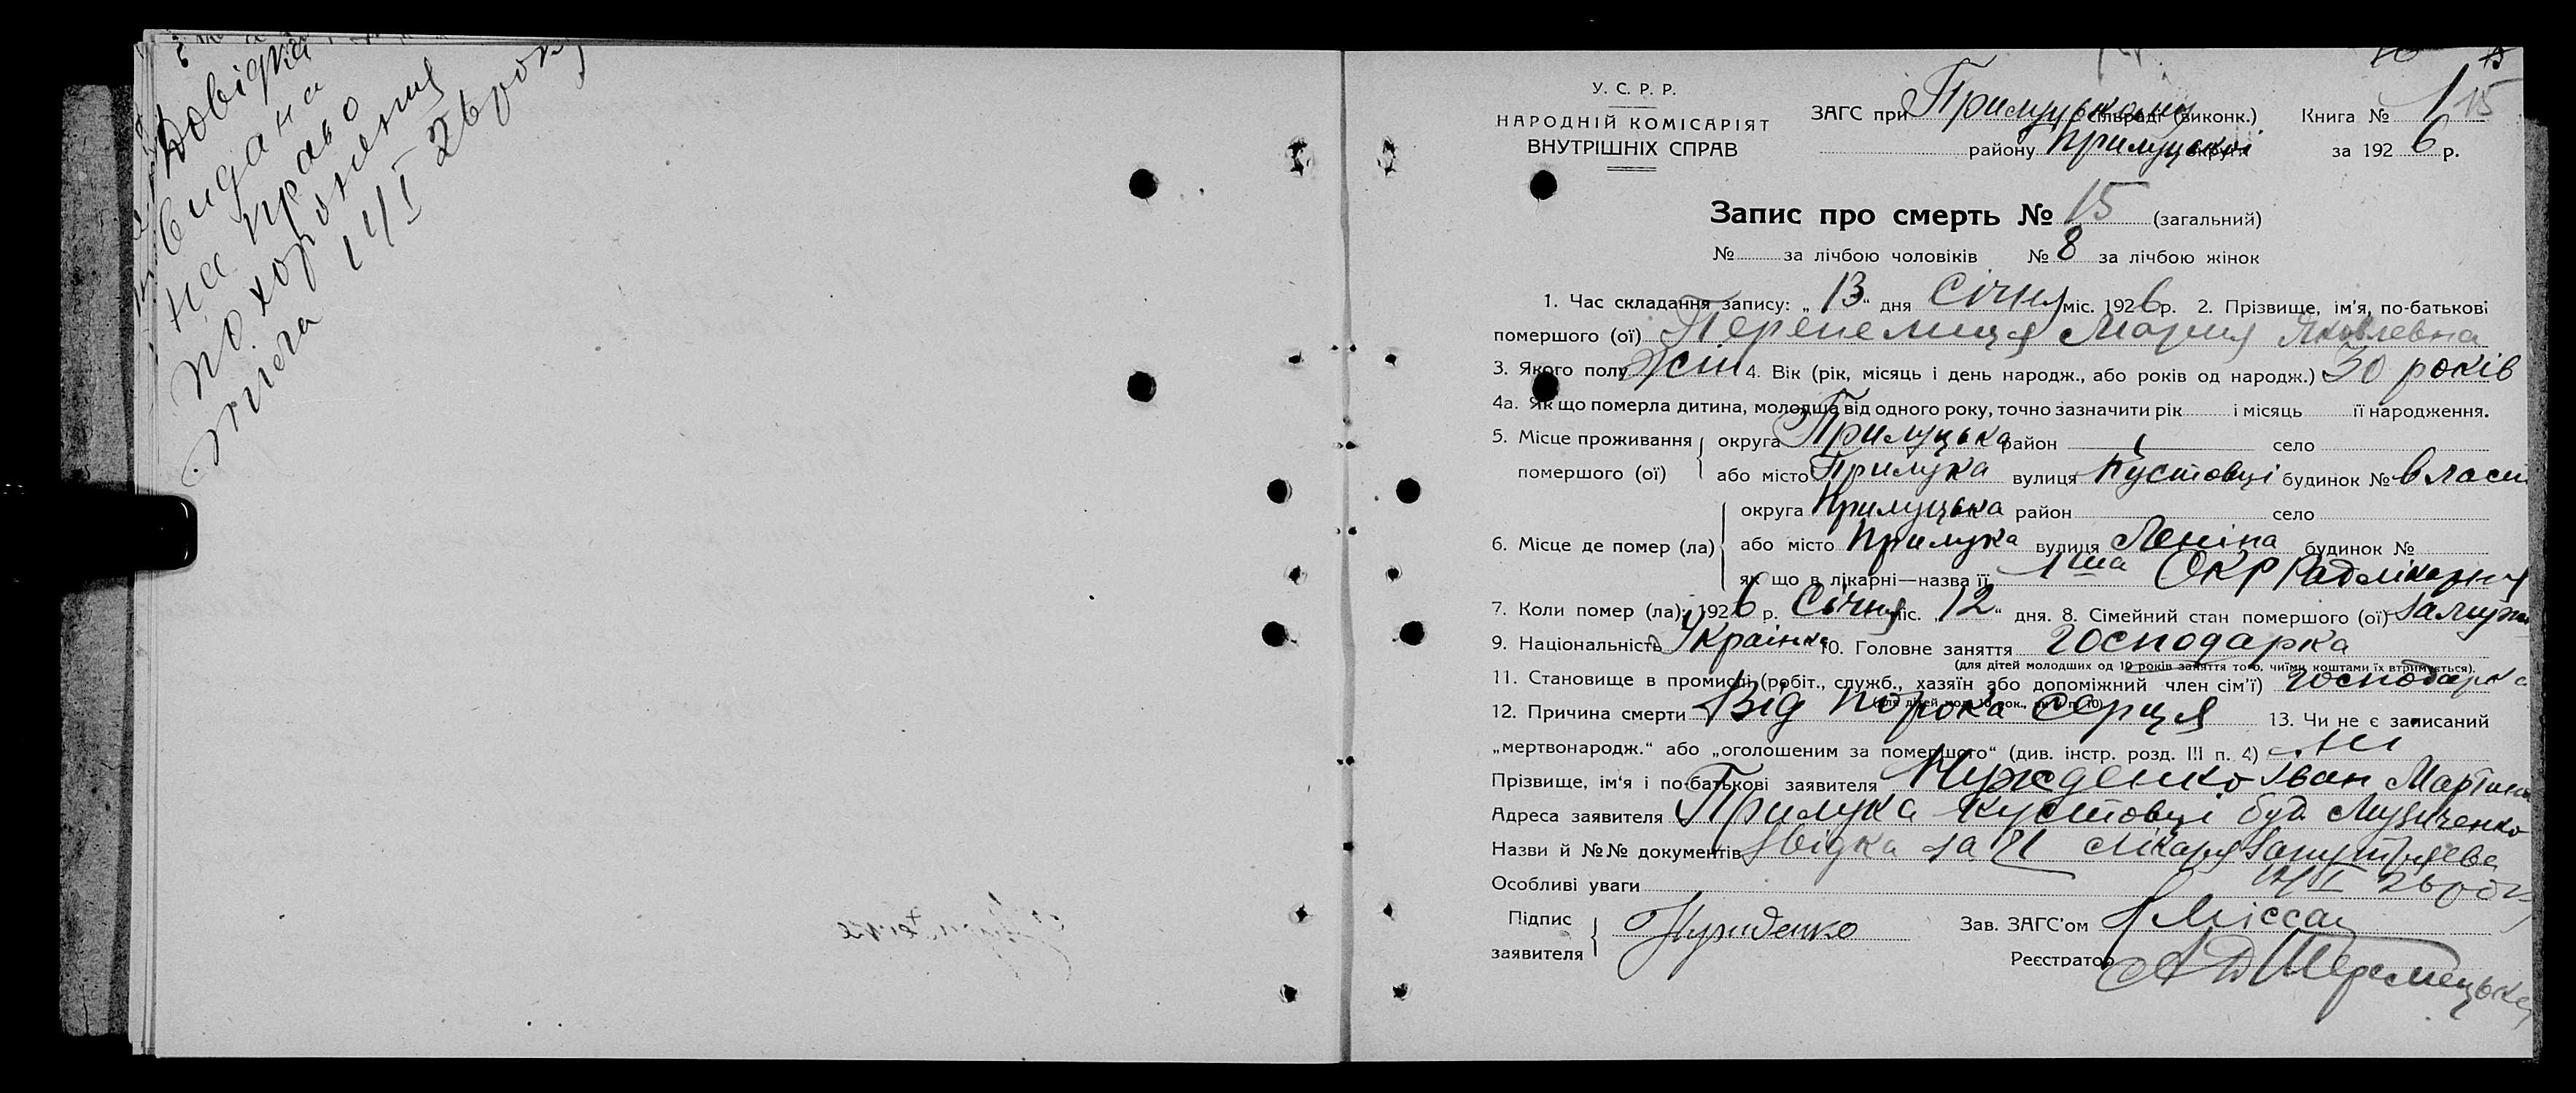 Довідка
видана
на право
похоронения
тіла 14/I 26 року
У. С. Р. Р.
НАРОДНІЙ КОМІСАРІЯТ
ВНУТРІШНІХ СПРАВ
ЗАГС при Прилуцькому сільраді (виконк.) Книга № 1 15
району Прилуцької округи за 192 6 р.
Запис про смерть № 15 (загальний)
№ за лічбою чоловіків № 8 за лічбою жінок
1. Час складання запису: „ 13 “ дня Січня міс. 192 6 р. 2. Прізвище, ім'я, по-батькові
помершого (ої) Перепелиця Мария Яковлевна
3. Якого полу жін 4. Вік (рік, місяць і день народж., або років од народж.) 30 років
4а. Як що померла дитина, молодша від одного року, точно зазначити рік і місяць її народження.
5. Місце проживання помершого (ої) округа Прилуцька район село
або місто Прилука вулиця Кустовці будинок № власн
6. Місце де помер (ла) округа Прилуцька район село
або місто Прилука вулиця Леніна будинок №
як що в лікарні—назва її 1ша Окр Радлікарня
7. Коли помер (ла): 192 6 р. Січня міс. „ 12 “ дня. 8. Сімейний стан помершого (ої) Замужн
9. Національність Українка 10. Головне заняття господарка
(для дітей молодших од 10 років заняття того, чиїми коштами їх втримується).
11. Становище в промислі (робіт., служб., хазяїн або допоміжний член сім'ї) господарка
(для дітей мол. 10 рок., див. п. 10)
12. Причина смерти Від порока серця 13. Чи не є записаний
„мертвонародж.“ або „оголошеним за помершого“ (див. інстр. розд. III п. 4) Ні
Прізвище, ім'я і по-батькові заявителя Нужденко Іван Мартин
Адреса заявителя Прилука Кустовці буд. Музиченко
Назви й №№ документів Звідка за № лікаря
14/I 26 року
Особливі уваги
Підпис заявителя Нужденко Зав. ЗАГС'ом
Реєстратор